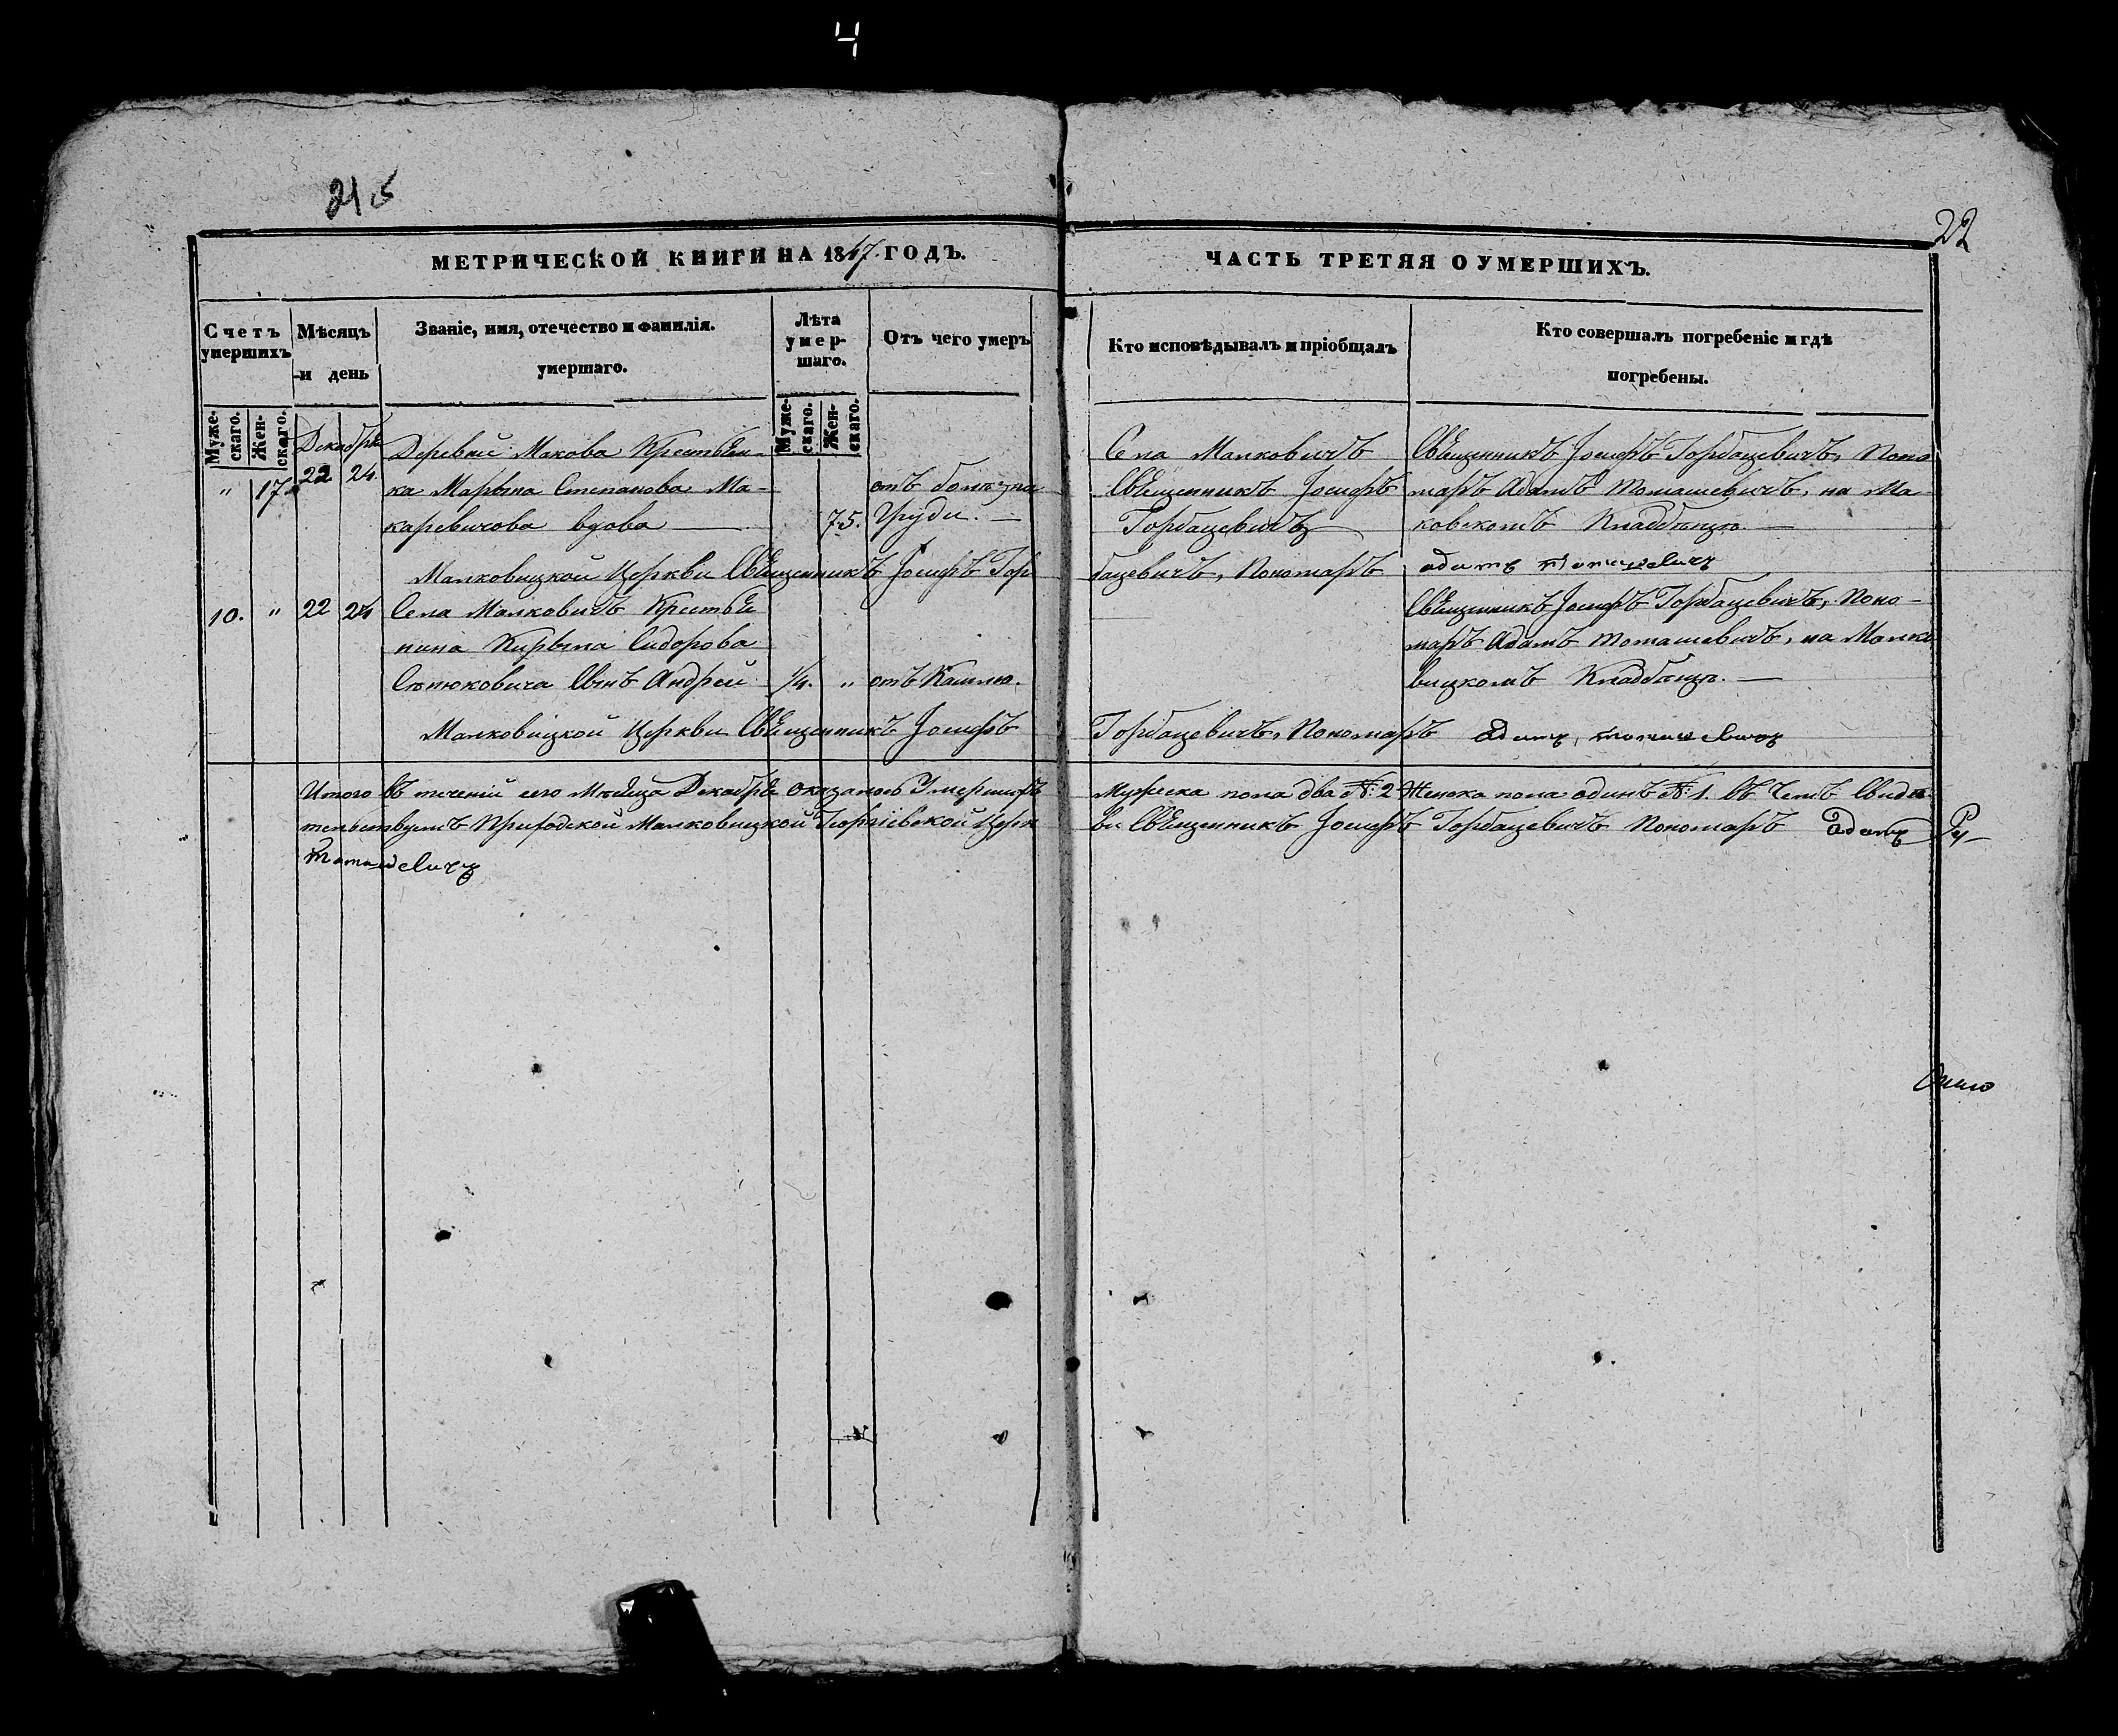 4
21 об
22
МЕТРИЧЕСКОЙ КНИГИ НА 1847. ГОДЪ.
ЧАСТЬ ТРЕТЯЯ О УМЕРШИХЪ.
Счетъ умершихъ
Мѣсяцъ и день
Званіе, имя, отечество и фамилія.
умершаго.
Лѣта умер-шаго.
Отъ чего умеръ
Кто исповѣдывалъ и пріобщалъ
Кто совершалъ погребеніе и гдѣ
погребены.
Муже-скаго.
Жен-скаго.
Муже-скаго.
Жен-скаго.
Декабрь
Деревни Макова Крестьян-
Села Малковичъ
Священникъ Іосифъ Горбацевичъ, Поно
" 17. 22 24. ка Марьяна Степанова Ма-
отъ болѣзни
Священникъ Іосифъ
марь Адамъ Томашевичъ, на Ма-
каревичова вдова 75. Груди.
Горбацевичъ
ковскомъ Кладбищѣ.
Малковицкой Церкви Священникъ Іосифъ Гор
бацевичъ, Пономарь
адамъ томашевичъ
10. " 22 24 Села Малковичъ Крестья
Священникъ Іосифъ Горбацевичъ, Поно-
нина Сидорова
марь Адамъ Томашевичъ, на Малко
Сынъ Андрей 1/4. " отъ Кашлю.
вицкомъ Кладбищѣ.
Малковицкой Церкви Священникъ Іосифъ
Горбацевичъ, Пономарь
адамъ, томашевичъ
Итого въ теченіи сего Мѣсяца Декабря оказалось Умершихъ
Мужеска пола два №: 2 Женска пола одинъ №: 1. въ чемъ Свидѣ-
тельствуемъ Приходской Малковицкой Георгіевской Церк
ви Священникъ Іосифъ Горбацевичъ Пономарь адамъ
томашевичъ